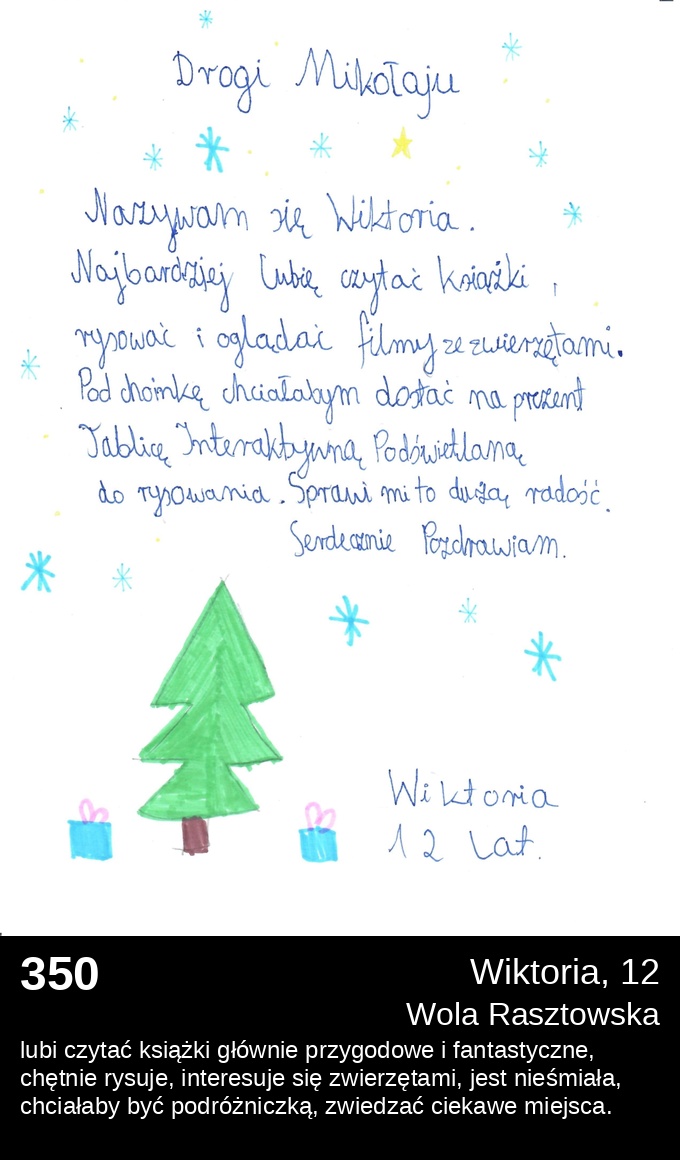 Drogi Mikołaju
Nazywam się Wiktoria.
Najbardziej lubię czytać książki,
rysować i oglądać filmy ze zwierzętami.
Pod choinkę chciałabym dostać na prezent
Tablicę Interaktywną Podświetlaną
do rysowania. Sprawi mi to dużą radość.
Serdecznie Pozdrawiam.
Wiktoria
12 lat.
350
Wiktoria, 12
Wola Rasztowska
lubi czytać książki głównie przygodowe i fantastyczne,
chętnie rysuje, interesuje się zwierzętami, jest nieśmiała,
chciałaby być podróżniczką, zwiedzać ciekawe miejsca.